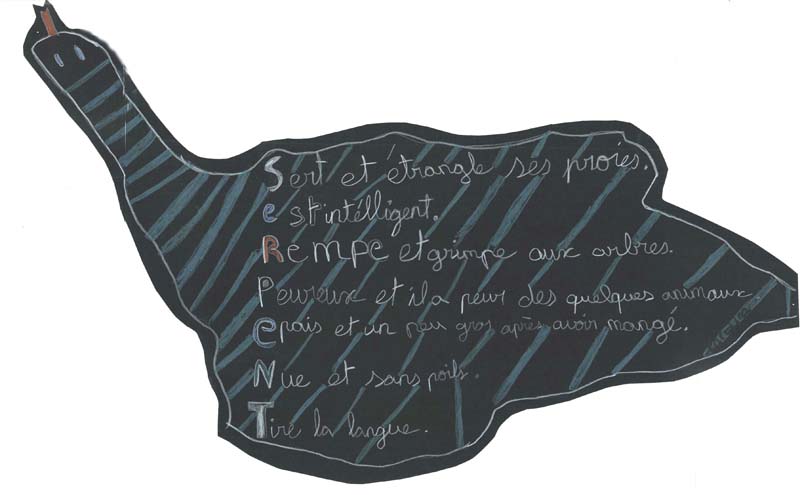 Sert et étrangle ses proies.
est intélligent.
Rempe et grimpe aux arbres.
Peureux et il a peur des quelques animaux
epais et un peu gros après avoir mangé.
Nue et sans poils.
Tire la langue.